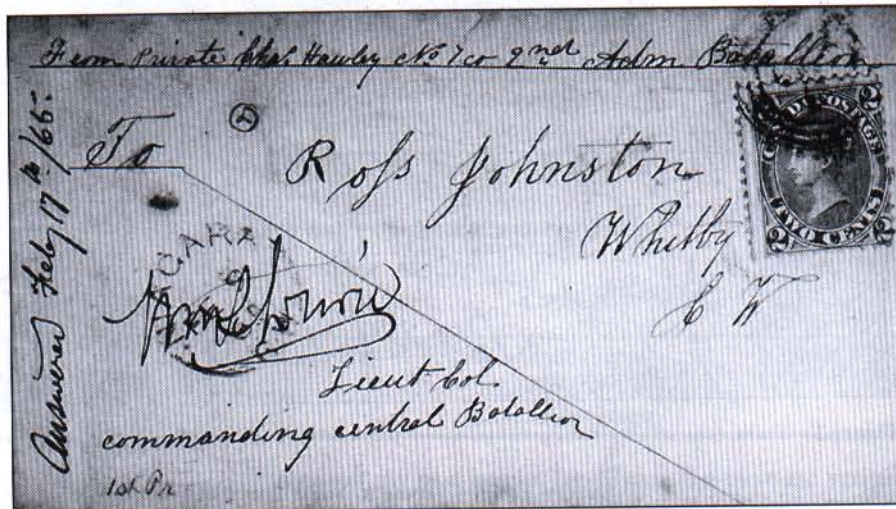 From Private Chas Hawley No 7 co 2nd Adm Batallion
Answered Feby 17th/65-
To
Ross Johnston
Whitby
C W
CANADA POSTAGE
2 2
2 TWO CENTS 2
Lieut Col
commanding central Batallion
1st Pr